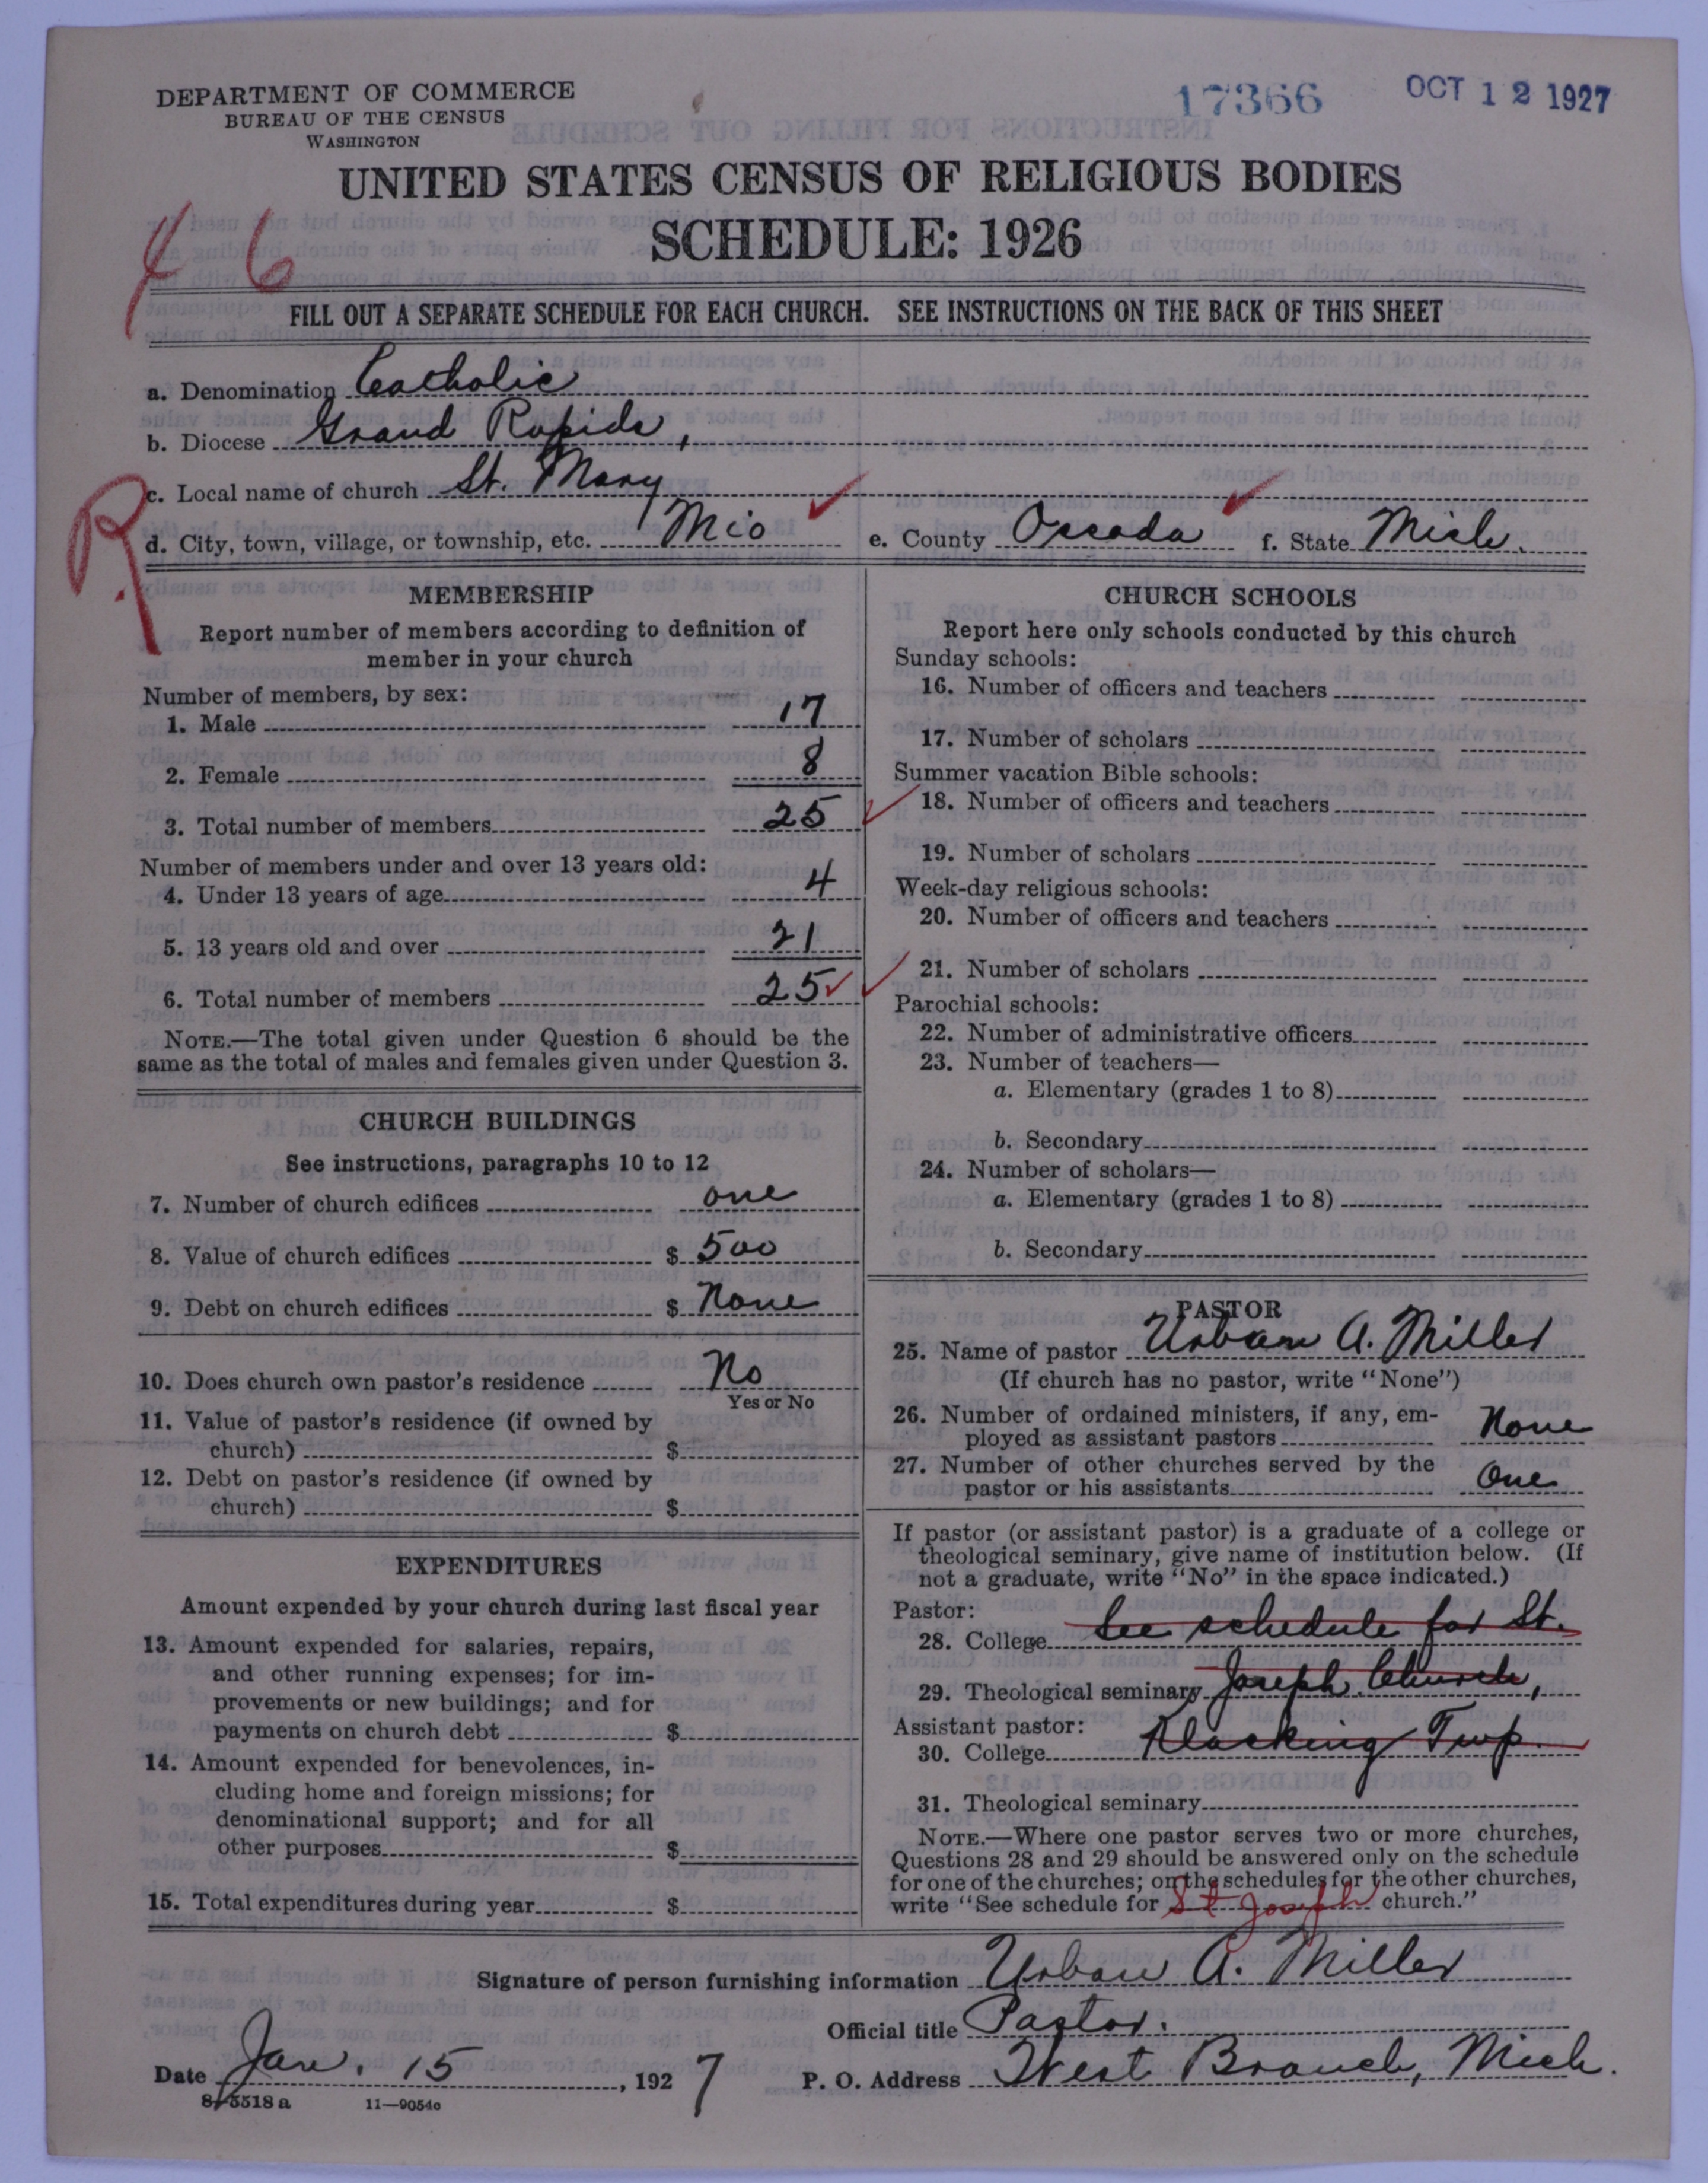 DEPARTMENT OF COMMERCE
BUREAU OF THE CENSUS
WASHINGTON
17366 OCT 12 1927
UNITED STATES CENSUS OF RELIGIOUS BODIES
SCHEDULE: 1926
46
FILL OUT A SEPARATE SCHEDULE FOR EACH CHURCH. SEE INSTRUCTIONS ON THE BACK OF THIS SHEET
a. Denomination Catholic
b. Diocese Grand Rapids,
R
c. Local name of church St. Mary
d. City, town, village, or township, etc. Mio e. County Oscoda f. State Mich.
MEMBERSHIP
Report number of members according to definition of
member in your church
Number of members, by sex:
1. Male 17
2. Female 8
3. Total number of members 25
Number of members under and over 13 years old:
4. Under 13 years of age 4
5. 13 years old and over 21
6. Total number of members 25
NOTE.—The total given under Question 6 should be the
same as the total of males and females given under Question 3.
CHURCH BUILDINGS
See instructions, paragraphs 10 to 12
7. Number of church edifices one
8. Value of church edifices $ 500
9. Debt on church edifices $ None
10. Does church own pastor's residence No
Yes or No
11. Value of pastor's residence (if owned by
church) $
12. Debt on pastor's residence (if owned by
church) $
EXPENDITURES
Amount expended by your church during last fiscal year
13. Amount expended for salaries, repairs,
and other running expenses; for im-
provements or new buildings; and for
payments on church debt $
14. Amount expended for benevolences, in-
cluding home and foreign missions; for
denominational support; and for all
other purposes $
15. Total expenditures during year $
CHURCH SCHOOLS
Report here only schools conducted by this church
Sunday schools:
16. Number of officers and teachers
17. Number of scholars
Summer vacation Bible schools:
18. Number of officers and teachers
19. Number of scholars
Week-day religious schools:
20. Number of officers and teachers
21. Number of scholars
Parochial schools:
22. Number of administrative officers
23. Number of teachers—
a. Elementary (grades 1 to 8)
b. Secondary
24. Number of scholars—
a. Elementary (grades 1 to 8)
b. Secondary
PASTOR
25. Name of pastor Urban A. Miller
(If church has no pastor, write "None")
26. Number of ordained ministers, if any, em-
ployed as assistant pastors None
27. Number of other churches served by the
pastor or his assistants One
If pastor (or assistant pastor) is a graduate of a college or
theological seminary, give name of institution below. (If
not a graduate, write "No" in the space indicated.)
Pastor:
28. College See schedule for St.
29. Theological seminary Joseph Church,
Assistant pastor:
30. College Klacking Twp.
31. Theological seminary
NOTE.—Where one pastor serves two or more churches,
Questions 28 and 29 should be answered only on the schedule
for one of the churches; on the schedules for the other churches,
write "See schedule for St Joseph church."
Signature of person furnishing information Urban A. Miller
Official title Pastor.
Date Jan. 15, 1927 P. O. Address West Branch, Mich.
8-5518 a 11—9054c